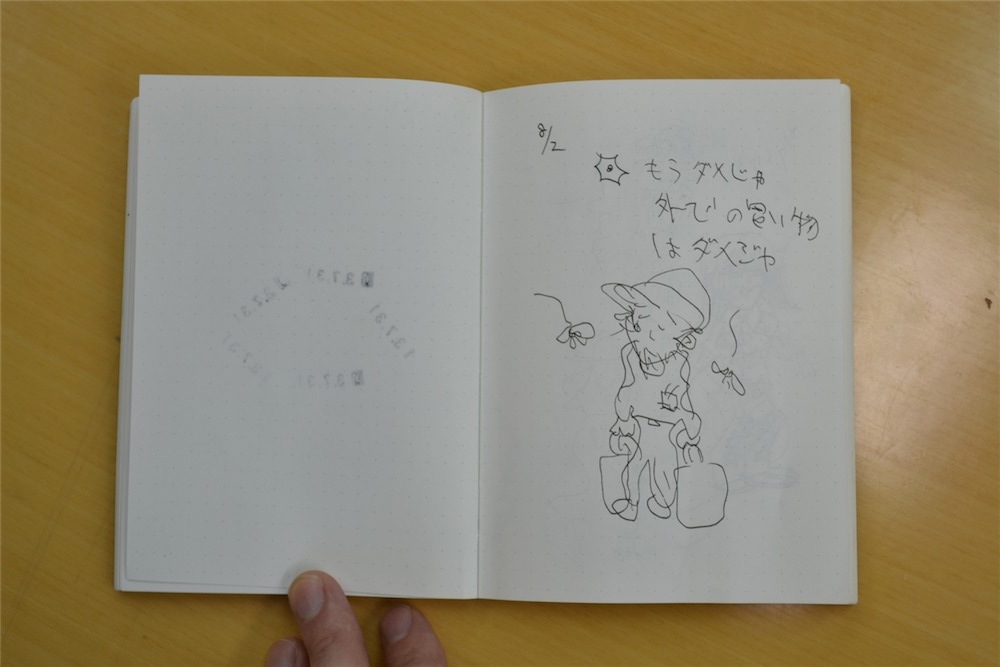 8/2
もうダメじゃ
外での買い物
はダメじゃ